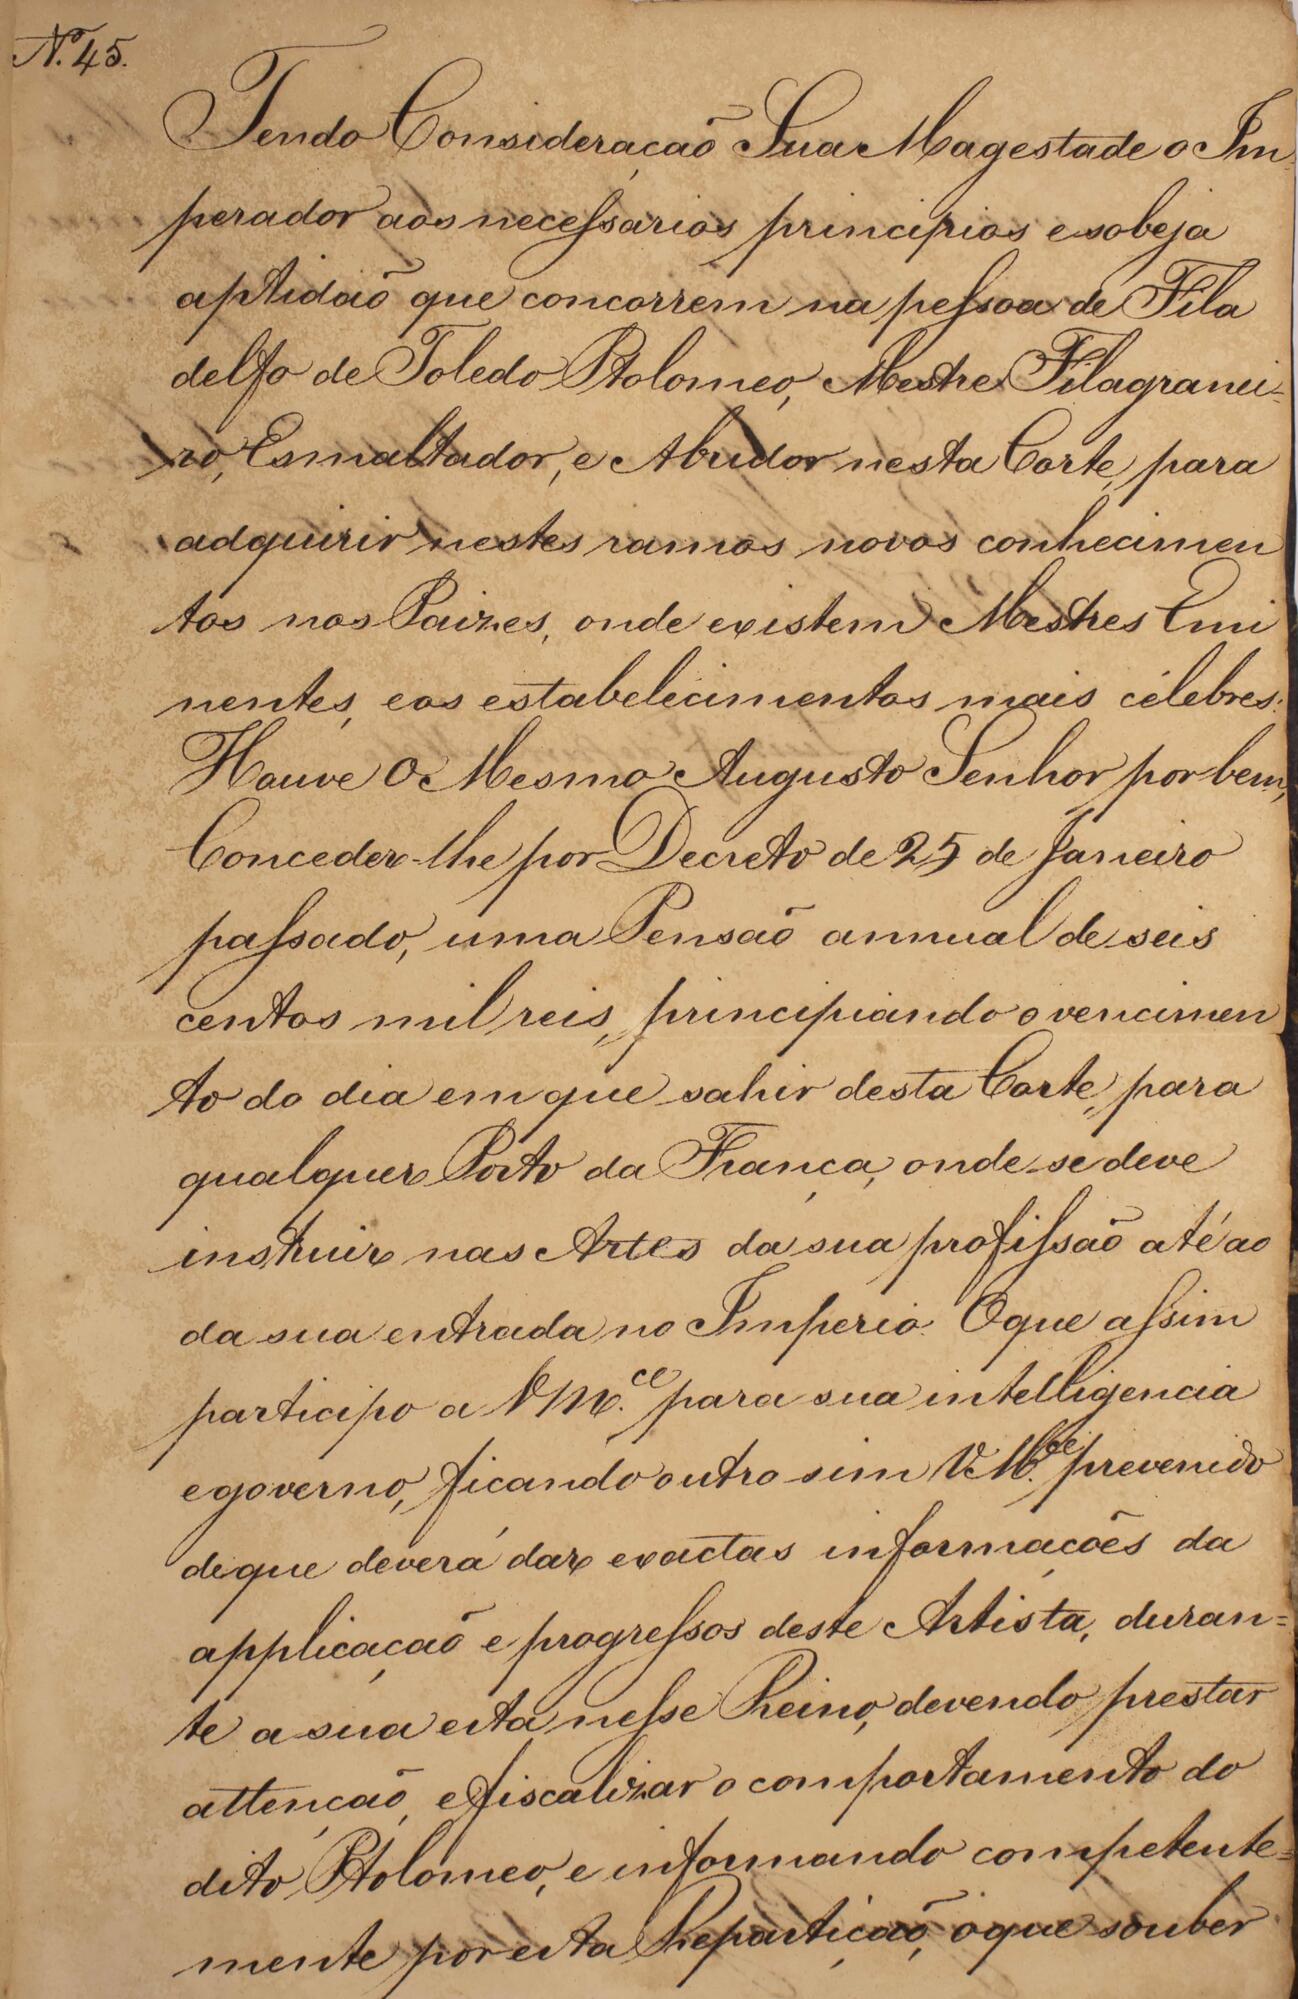 Nº 45.
Tendo Consideração Sua Magestade o Im
perador aos necessarios principios e sobeja
aptidaõ que concorrem na pessoa de Fila
delfo de Toledo Ptolomeo, Mestre Filagranei=
ro, Esmaltador, e Abridor nesta Corte, para
adquirir nestes ramos novos conhecimen
tos nos Paizes, onde existem Mestres Emi
nentes, e os estabelecimentos mais célebres:
Houve O Mesmo Augusto Senhor por bem,
Conceder-lhe por Decreto de 25 de Janeiro
passado, uma Pensaõ annual de seis
centos mil reis, principiando o vencimen
to do dia em que sahir desta Corte, para
qualquer Porto da França, onde se deve
instruir nas Artes da sua profissaõ até ao
da sua entrada no Imperio. O que assim
participo a V M.ce para sua intelligencia
e governo, ficando outro sim V. M.ce prevenido
de que deverá dar exactas informações da
applicaçaõ e progressos deste Artista, duran=
te a sua esta nesse Reino, devendo prestar
attençaõ, e fiscalizar o comportamento do
dito Ptolomeo, e informando competente=
mente por esta Repartiçaõ, o que souber